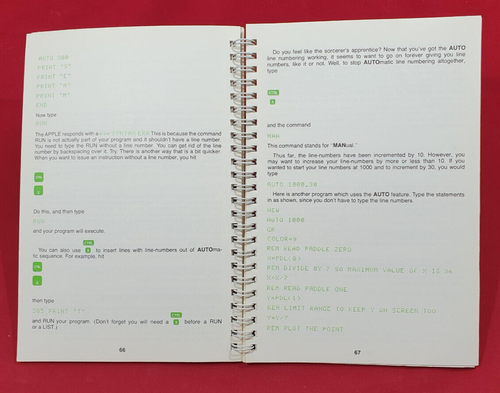 AUTO 300
PRINT "S"
PRINT "E"
PRINT "A"
PRINT "M"
END
Now type
RUN
The APPLE responds with a *** SYNTAX ERR This is because the command
RUN is not actually part of your program and it shouldn't have a line number.
You need to type the RUN without a line number. You can get rid of the line
number by backspacing over it. Try. There is another way that is a bit quicker.
When you want to issue an instruction without a line number, you hit
CTRL
X
Do this, and then type
and your program will execute.
CTRL
You can also use X to insert lines with line-numbers out of AUTOma-
tic sequence. For example, hit
CTRL
X
then type
CTRL
and RUN your program. (Don't forget you will need a X before a RUN
or a LIST.)
66
Do you feel like the sorcerer's apprentice? Now that you've got the AUTO
line numbering working, it seems to want to go on forever giving you line
numbers, like it or not. Well, to stop AUTOmatic line numbering altogether,
type
CTRL
X
and the command
MAN
This command stands for "MANual."
Thus far, the line-numbers have been incremented by 10. However, you
may want to increase your line-numbers by more or less than 10. If you
wanted to start your line numbers at 1000 and to increment by 30, you would
type
AUTO 1000,30
Here is another program which uses the AUTO feature. Type the statements
in as shown, since you don't have to type the line numbers.
NEW
AUTO 1000
GR
COLOR=9
REM READ PADDLE ZERO
X=PDL(0)
REM DIVIDE BY 7 SO MAXIMUM VALUE OF X IS 36
X=X/7
REM READ PADDLE ONE
Y=PDL(1)
REM LIMIT RANGE TO KEEP Y ON SCREEN TOO
Y=Y/7
REM PLOT THE POINT
67